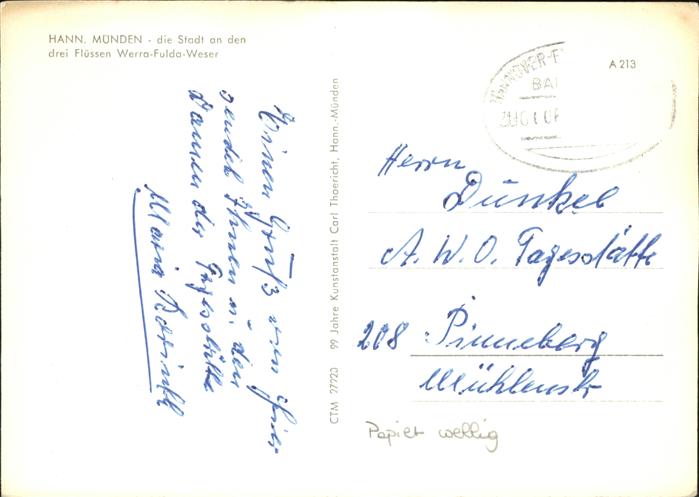 HANN. MÜNDEN - die Stadt an den
drei Flüssen Werra-Fulda-Weser
Einen Gruß von hier
sendet Ihnen u. den
Damen der Tagesstätte
Maria
CTM 27220 99 Jahre Kunstanstalt Carl Thoericht, Hann.-Münden
HANNOVER-F
BA
ZUG
A 213
Herrn
Dunkel
A. W. O. Tagesstätte
208 Pinneberg
Mühlenstr
Papier wellig